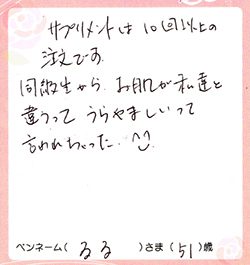 サプリメントは10回以上の
注文です。
同級生から、お肌が私達と
違うって うらやましいって
言われちゃった。
ペンネーム( るる )さま( 51 )歳